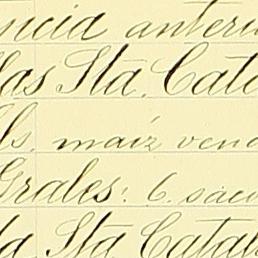 ncia anteri
las Sta. Cata
ls. maíz vend
Grales: 6 sac
la Sta Catal